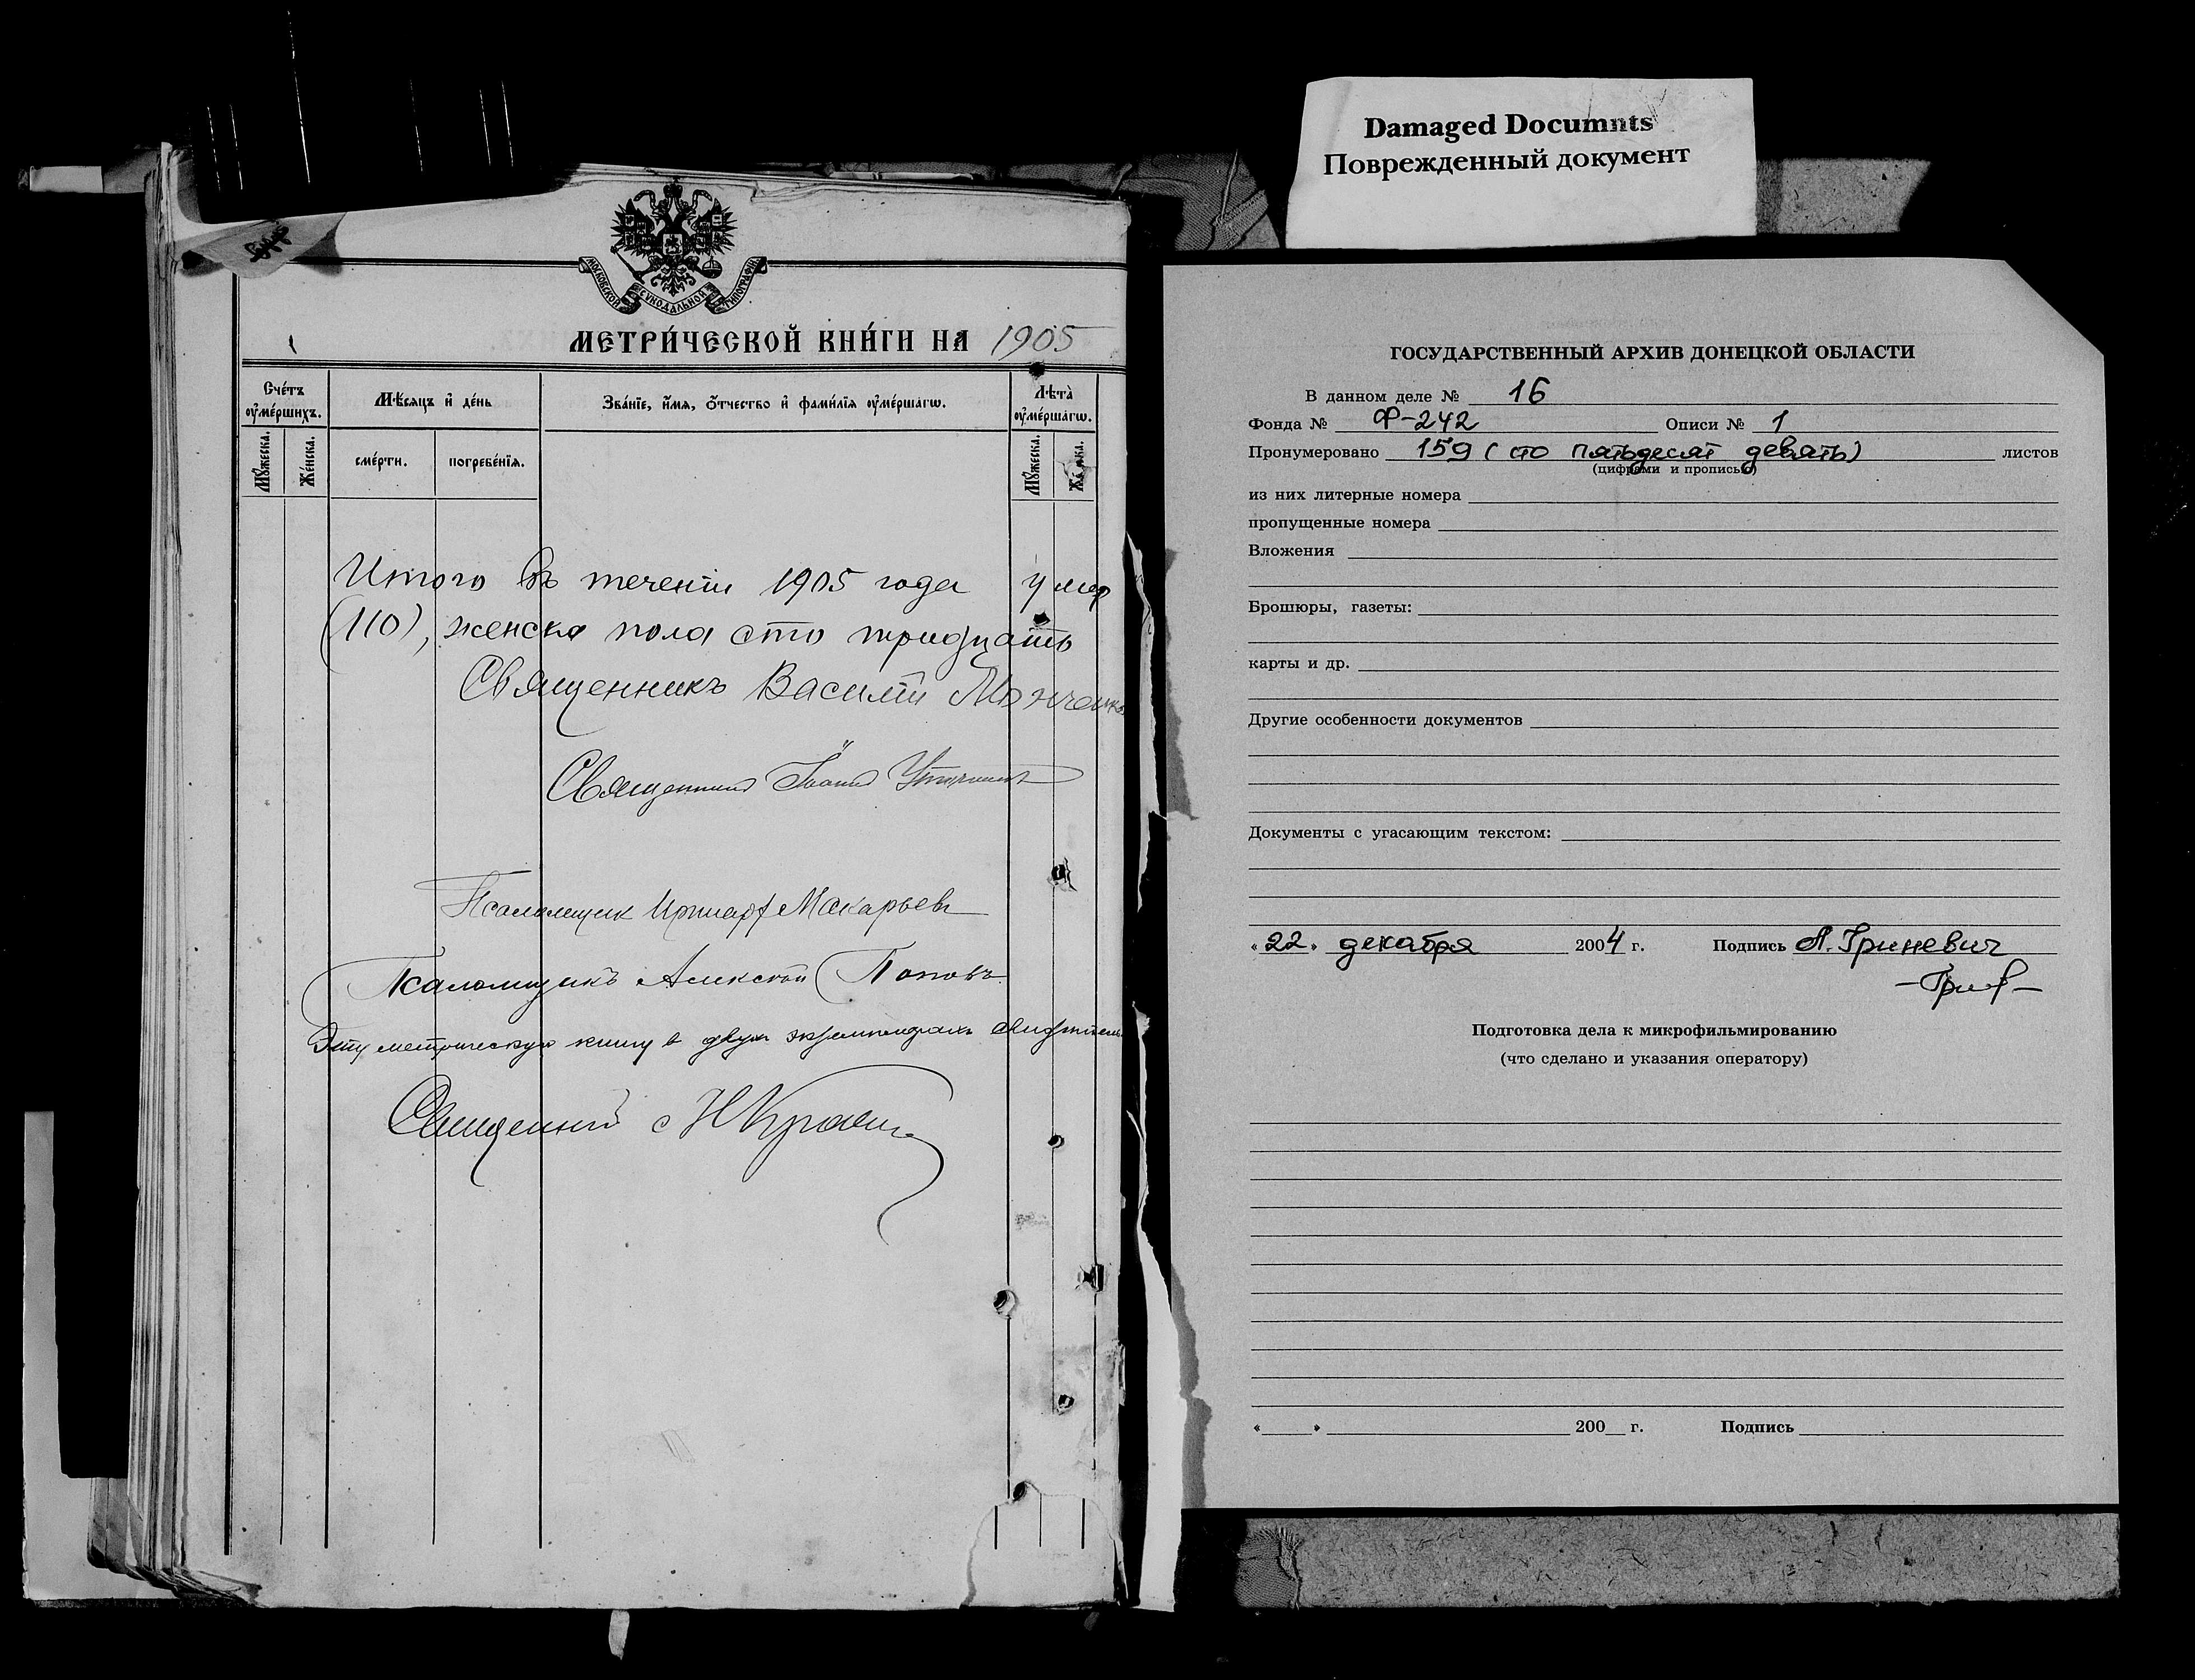 Damaged Documnts
Поврежденный документ
МОСКОВСКОЙ СѴНОДАЛЬНОЙ ТИПОГРАФІИ
МЕТРИ́ЧЕСКОЙ КНИ́ГИ НА 1905
Сче́тъ ᲂу҆ме́ршихъ.
Мѣ́сяцъ и҆ де́нь
Зва́нїе, и҆́мѧ, ѻ҆́тчество и҆ фами́лїѧ ᲂу҆ме́ршагѡ.
Лѣта̀ ᲂу҆ме́ршагѡ.
Мꙋ́жеска.
Же́нска.
сме́рти.
погребе́нїѧ.
Мꙋ́жеска.
Итого въ теченіи 1905 года умер
(110), женска пола сто тридцать
Священникъ Василій
Священник Іоанн
Псаломщик Макарьев
Псаломщикъ Алексѣй Поповъ
Эту метрическую книгу в двух экземплярах
Священник
ГОСУДАРСТВЕННЫЙ АРХИВ ДОНЕЦКОЙ ОБЛАСТИ
В данном деле № 16
Фонда № Ф-242 Описи № 1
Пронумеровано 159 (сто пятьдесят девять) листов
(цифрами и прописью)
из них литерные номера
пропущенные номера
Вложения
Брошюры, газеты:
карты и др.
Другие особенности документов
Документы с угасающим текстом:
«22» декабря 2004 г. Подпись А. Гриневич
Подготовка дела к микрофильмированию
(что сделано и указания оператору)
« » 200 г. Подпись